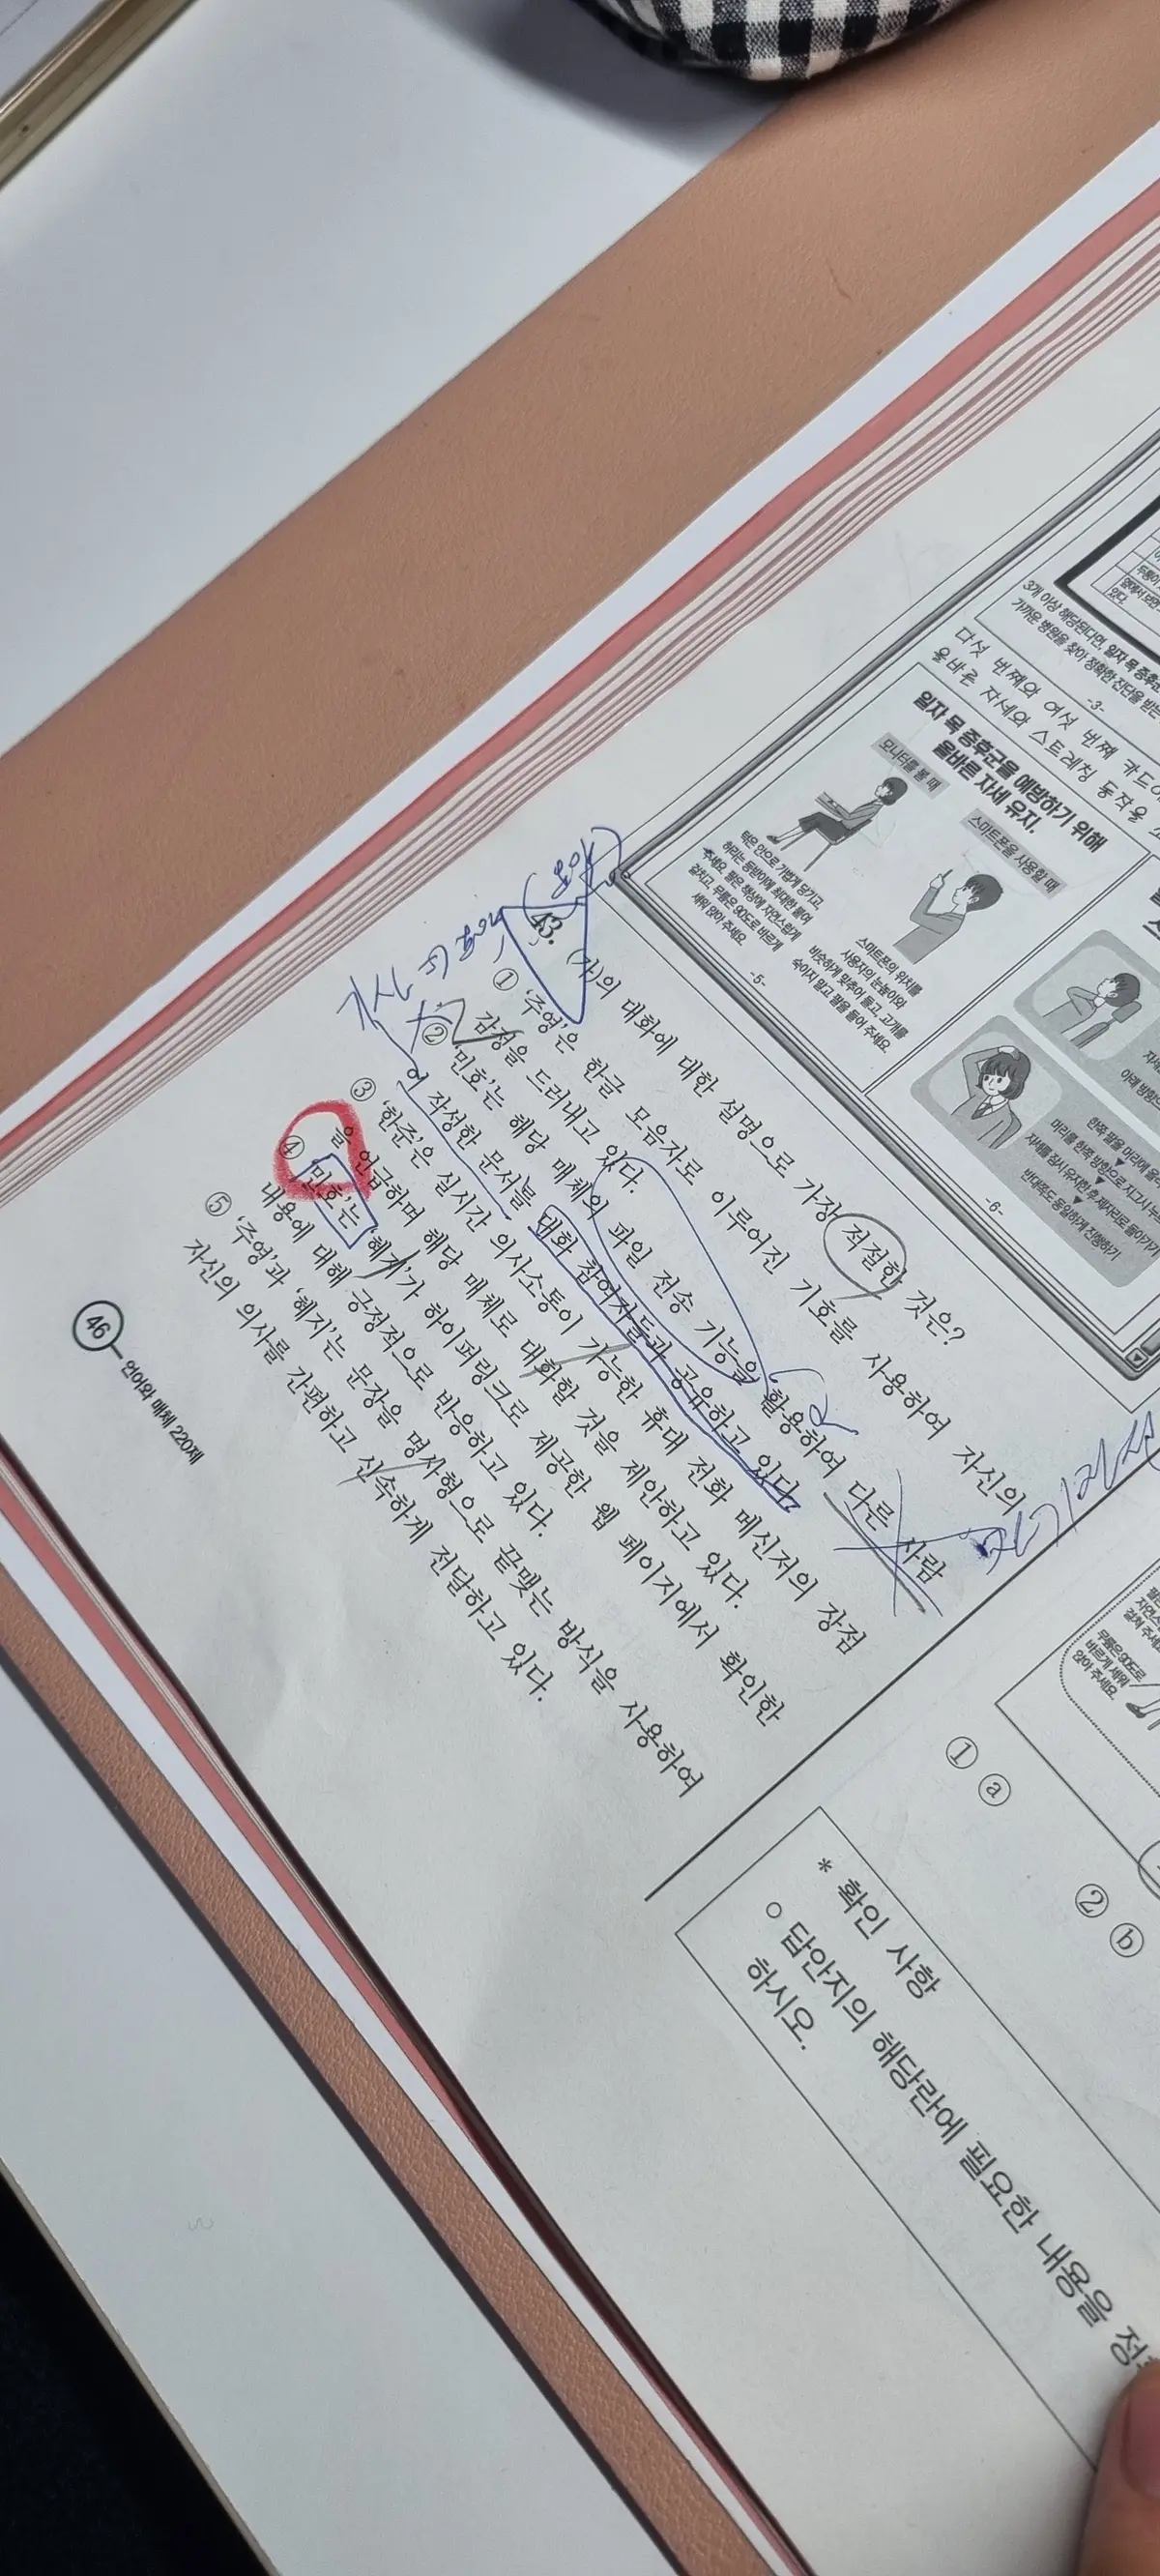 3개 이상 해당된다면, 일자 목 증후군
가까운 병원을 찾아 정확한 진단을 받는
-3-
다섯 번째와 여섯 번째 카드에
올바른 자세와 스트레칭 동작을
일자 목 증후군을 예방하기 위해
올바른 자세 유지.
모니터를 볼 때
스마트폰을 사용할 때
턱은 안으로 가볍게 당기고,
허리는 등받이에 최대한 붙여
주세요. 팔은 책상에 자연스럽게
걸치고, 무릎은 90도로 바르게
세워 앉아 주세요.
스마트폰의 위치를
사용자의 눈높이와
비슷하게 맞추어 들고, 고개를
숙이지 말고 팔을 들어 주세요.
-5-
한쪽 팔을 머리에 올리고
머리를 한쪽 방향으로 지그시 누르
자세를 잠시 유지한 후 제자리로 돌아가기
반대쪽도 동일하게 진행하기
-6-
43. (가)의 대화에 대한 설명으로 가장 적절한 것은?
① '주영'은 한글 모음자로 이루어진 기호를 사용하여 자신의
감정을 드러내고 있다.
② '민호'는 해당 매체의 파일 전송 기능을 활용하여 다른 사람
이 작성한 문서를 대화 참여자들과 공유하고 있다.
③ '한준'은 실시간 의사소통이 가능한 휴대 전화 메신저의 장점
을 언급하며 해당 매체로 대화할 것을 제안하고 있다.
④ '민호'는 '혜지'가 하이퍼링크로 제공한 웹 페이지에서 확인한
내용에 대해 긍정적으로 반응하고 있다.
⑤ '주영'과 '혜지'는 문장을 명사형으로 끝맺는 방식을 사용하여
자신의 의사를 간편하고 신속하게 전달하고 있다.
46 언어와 매체 220제
① ⓐ
② ⓑ
* 확인 사항
○ 답안지의 해당란에 필요한 내용을 정확
하시오.